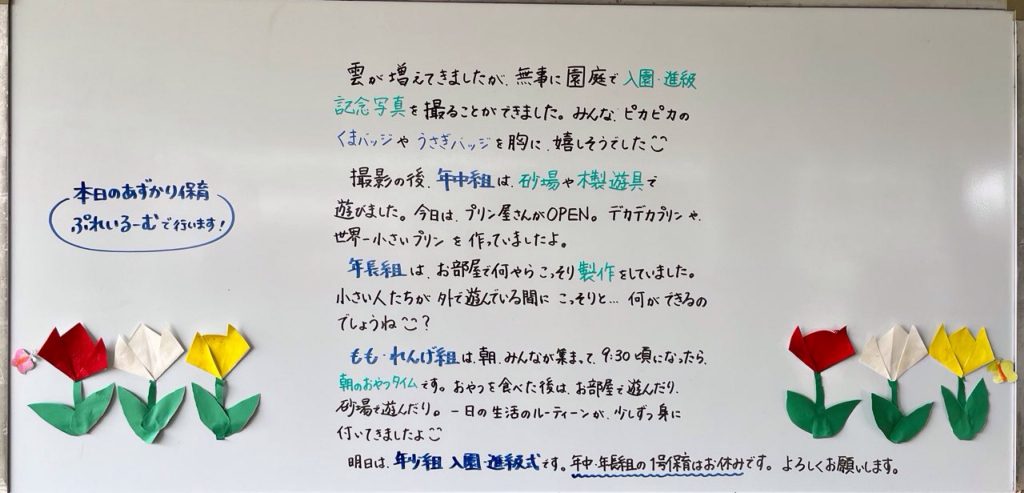 本日のあずかり保育
ぷれいるーむで行います!
雲が増えてきましたが、無事に園庭で入園・進級
記念写真を撮ることができました。みんな、ピカピカの
くまバッジやうさぎバッジを胸に、嬉しそうでした
撮影の後、年中組は、砂場や木製遊具で
遊びました。今日は、プリン屋さんがOPEN。デカデカプリンや、
世界一小さいプリンを作っていましたよ。
年長組は、お部屋で何やらこっそり製作をしていました。
小さい人たちが外で遊んでいる間にこっそりと…何ができるの
でしょうね?
もも・れんげ組は、朝、みんなが集まって、9:30頃になったら、
朝のおやつタイムです。おやつを食べた後は、お部屋で遊んだり、
砂場で遊んだり。一日の生活のルーティーンが、少しずつ身に
付いてきましたよ
明日は、年少組 入園・進級式です。年中・年長組の1号保育はお休みです。よろしくお願いします。